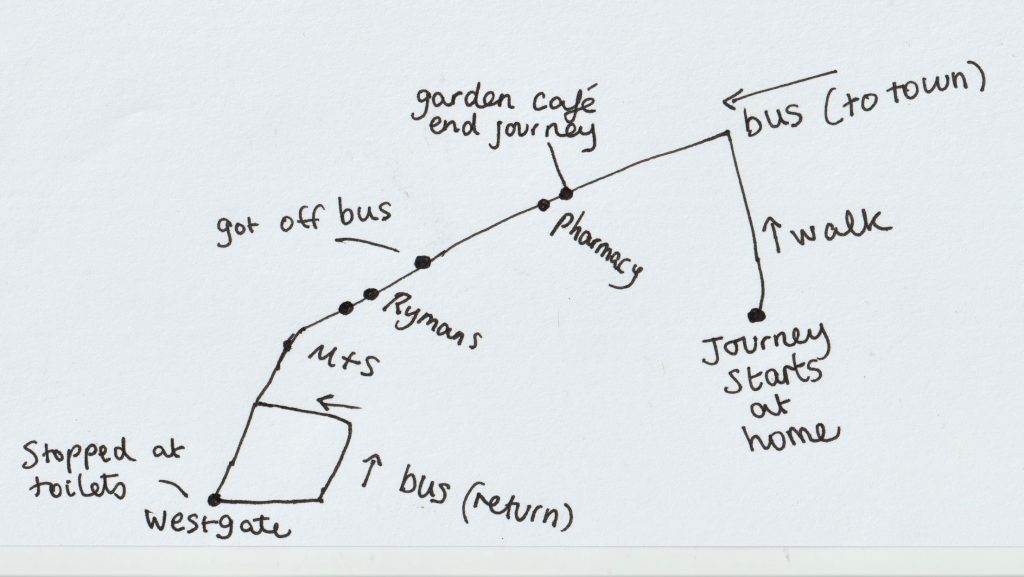 garden café
end journey
bus (to town)
got off bus
pharmacy
↑ walk
Rymans
Journey
starts
at
home
M+S
Stopped at
toilets
↑ bus (return)
Westgate